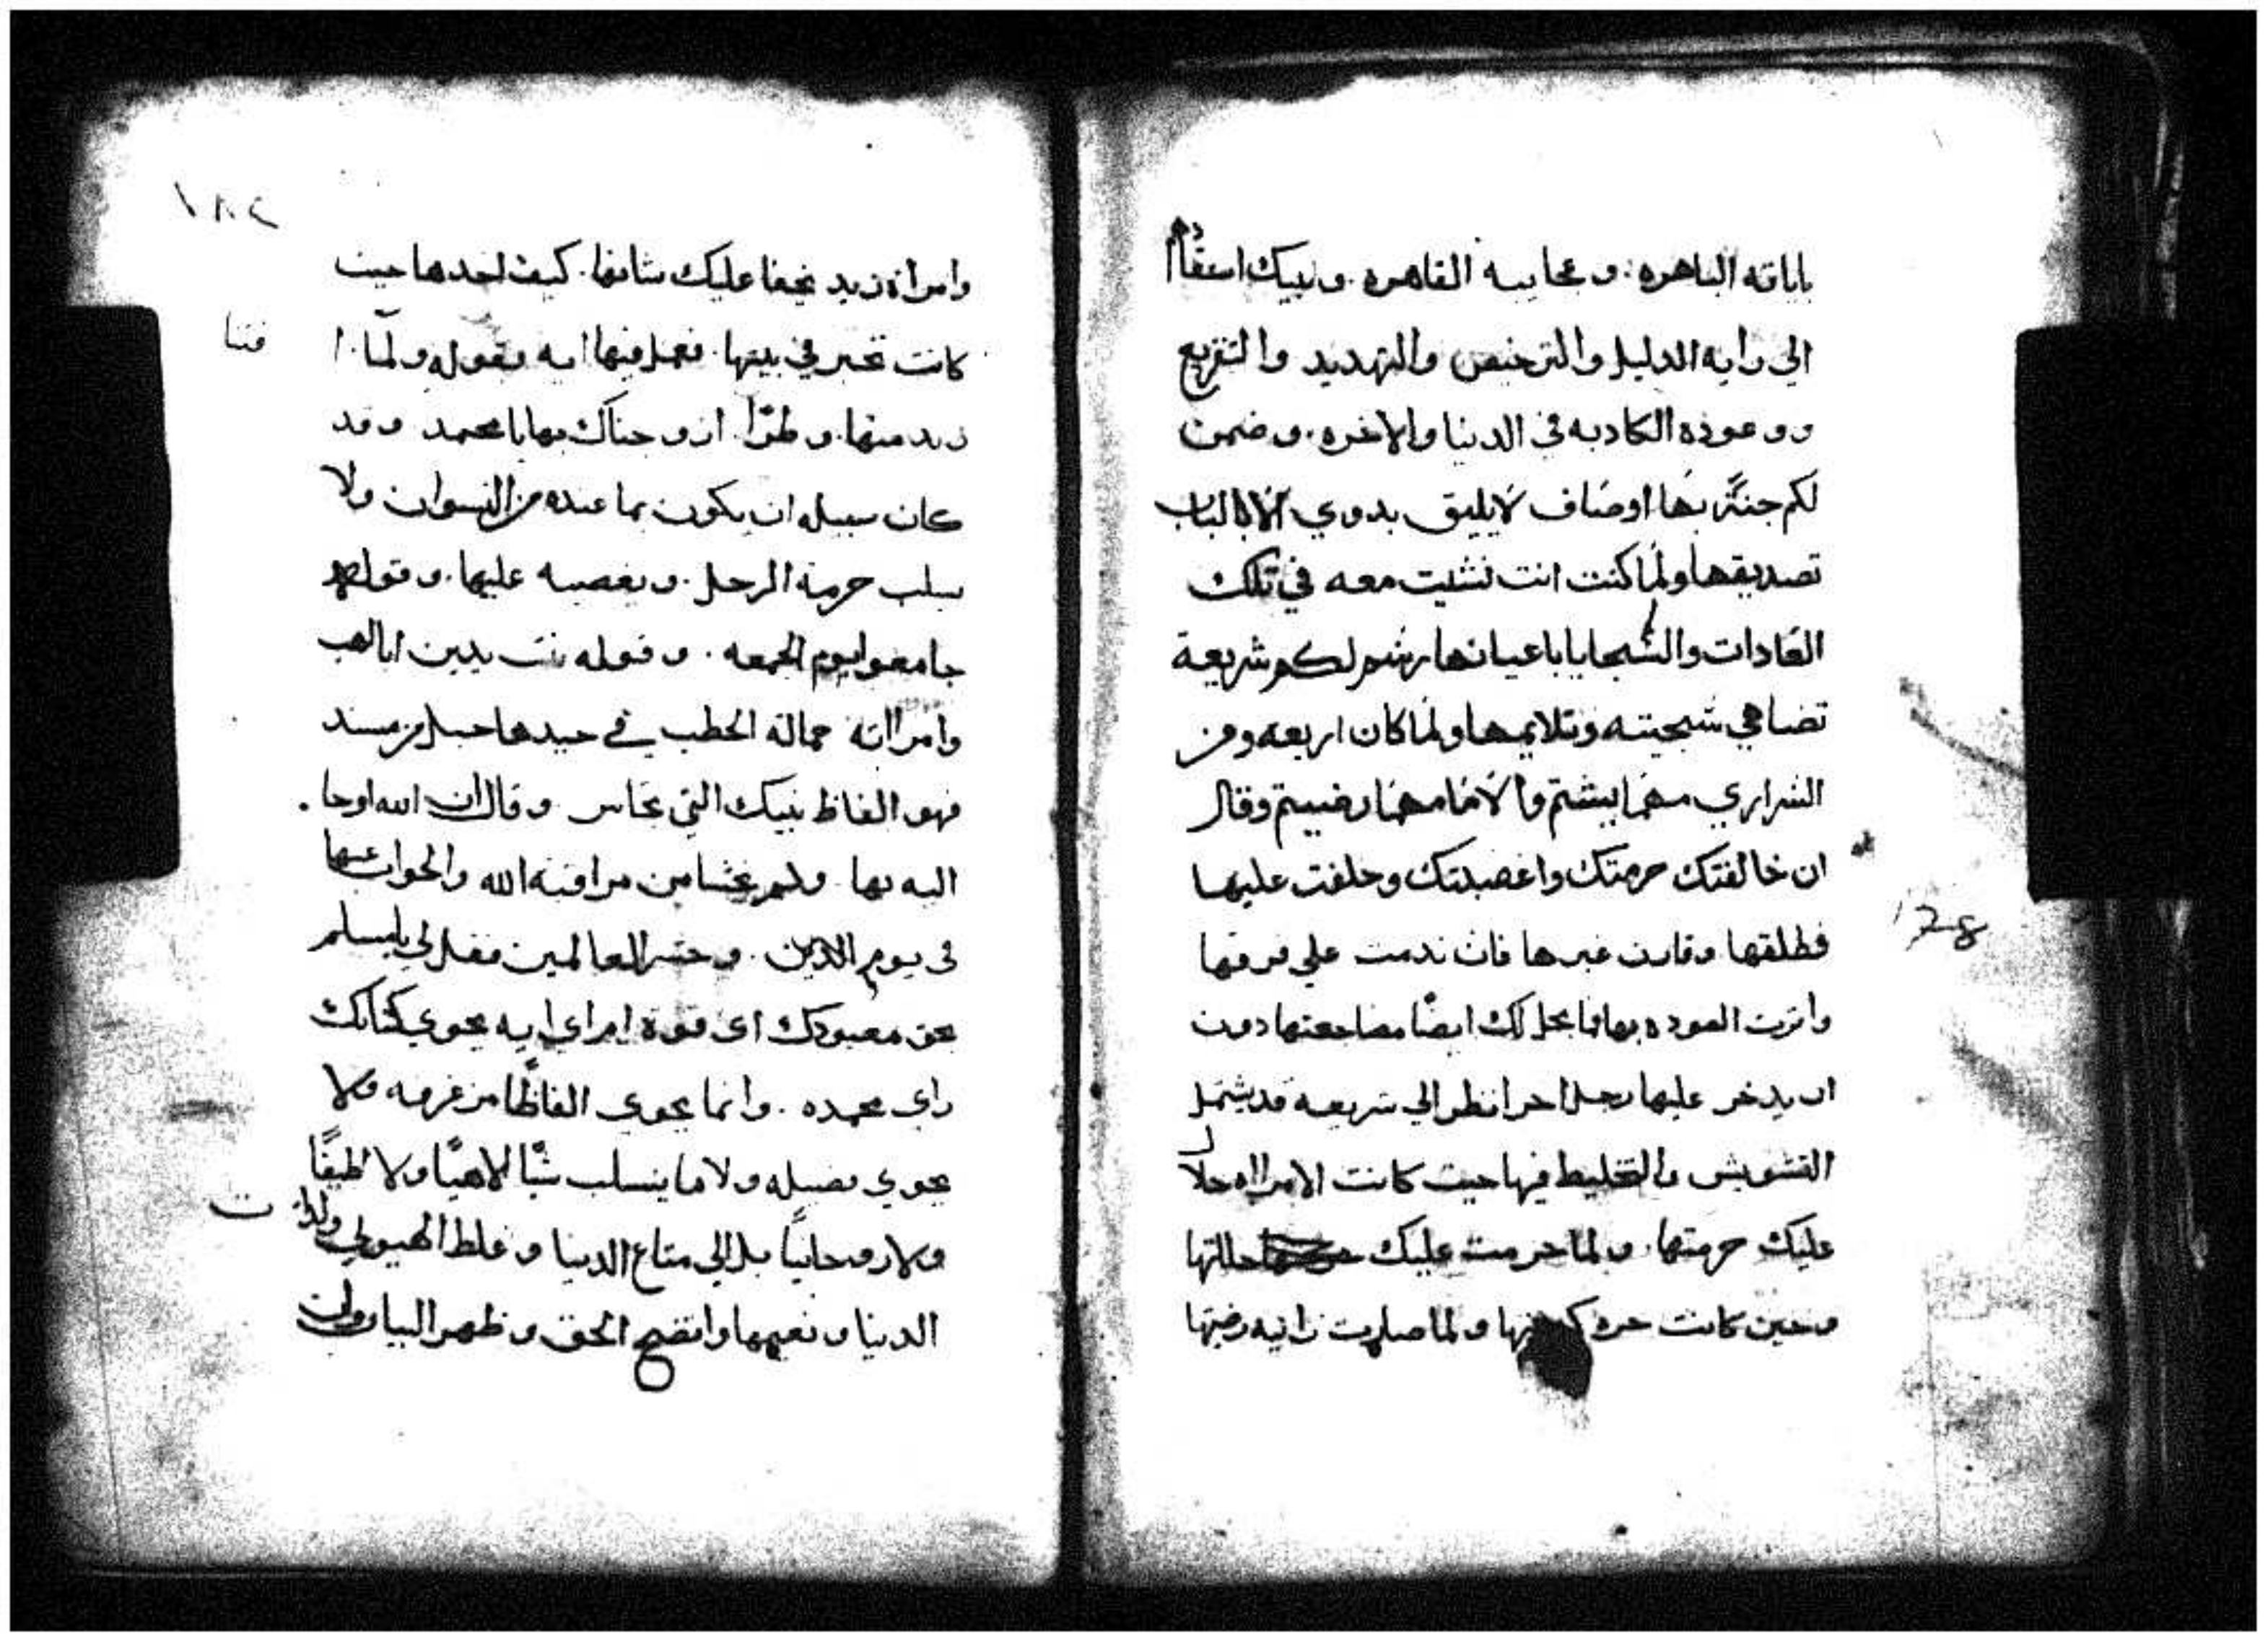 باياته الباهره. وعجايبه القاهره. ونبيك استقادكم
الي رايه الدليل والترخيص والتهديد والتقريع
ووعوده الكادبه في الدنيا والاخره. وضمن
لكم جنةً بها اوصاف لا يليق بدوي الالباب
تصديقها ولما كنت انت نشيت معه في تلك
العادات والسجايا باعيانها رشم لكم شريعة
تضاهي سجيته وتلايمها ولما كان اربعه ومن
السراري مهما يشتم والاما مهما رضيتم وقال
ان خالفتك حرمتك واغضبتك وحلفت عليها
فطلقها وقارن غيرها فان ندمت علي فرقها
واثرت العوده بها فما يحل لك ايضًا مضاجعتها دون
ان يدخر عليها رجل اخر انظر الي شريعه قد يشتمل
التشويش والتخليط فيها حيت كانت الامراه حلال
عليك حرمتها. ولما حرمت عليك حللتها
وحين كانت حره ولما صارت زانيه رضيتها
١٢٨
١٨٢
وامراة زيد يخفا عليك شانها. كيف اخدها حيث
كانت تخبز في بيتها. فعمل فيها ايه بقوله ولما ا
قضا
زيد منها. وطرًا. ازوجناك بها يا محمد وقد
كان سبيله ان يكون بما عنده من النسوان ولا
يسلب حرمة الرجل. ويغصبه عليها. وقوله
جامعوا يوم الجمعه. وقوله تبت يدين ابا لهب
وامراته حمالة الحطب في جيدها حبل من مسد
فهو الفاظ نبيك التي تجاسر وقال ان الله اوحا.
اليه بها ولم يخشا من مراقبة الله والجواب عنها
في يوم الدين. وحشر العالمين فقل لي يا مسلم
بحق معبودك اي قوة ام اي ايه يحوي كتابك
راي محمده. وانما يحوي الفاظًا من غرمه ولا
يحوي فضيله ولا ما ينسلب شيًا لاهيًا ولا لطيفًا
ولا روحانيًا بل الي متاع الدنيا وغلط الهيولي ولذات
الدنيا ونعيمها واتضح الحق وظهر البيان وان